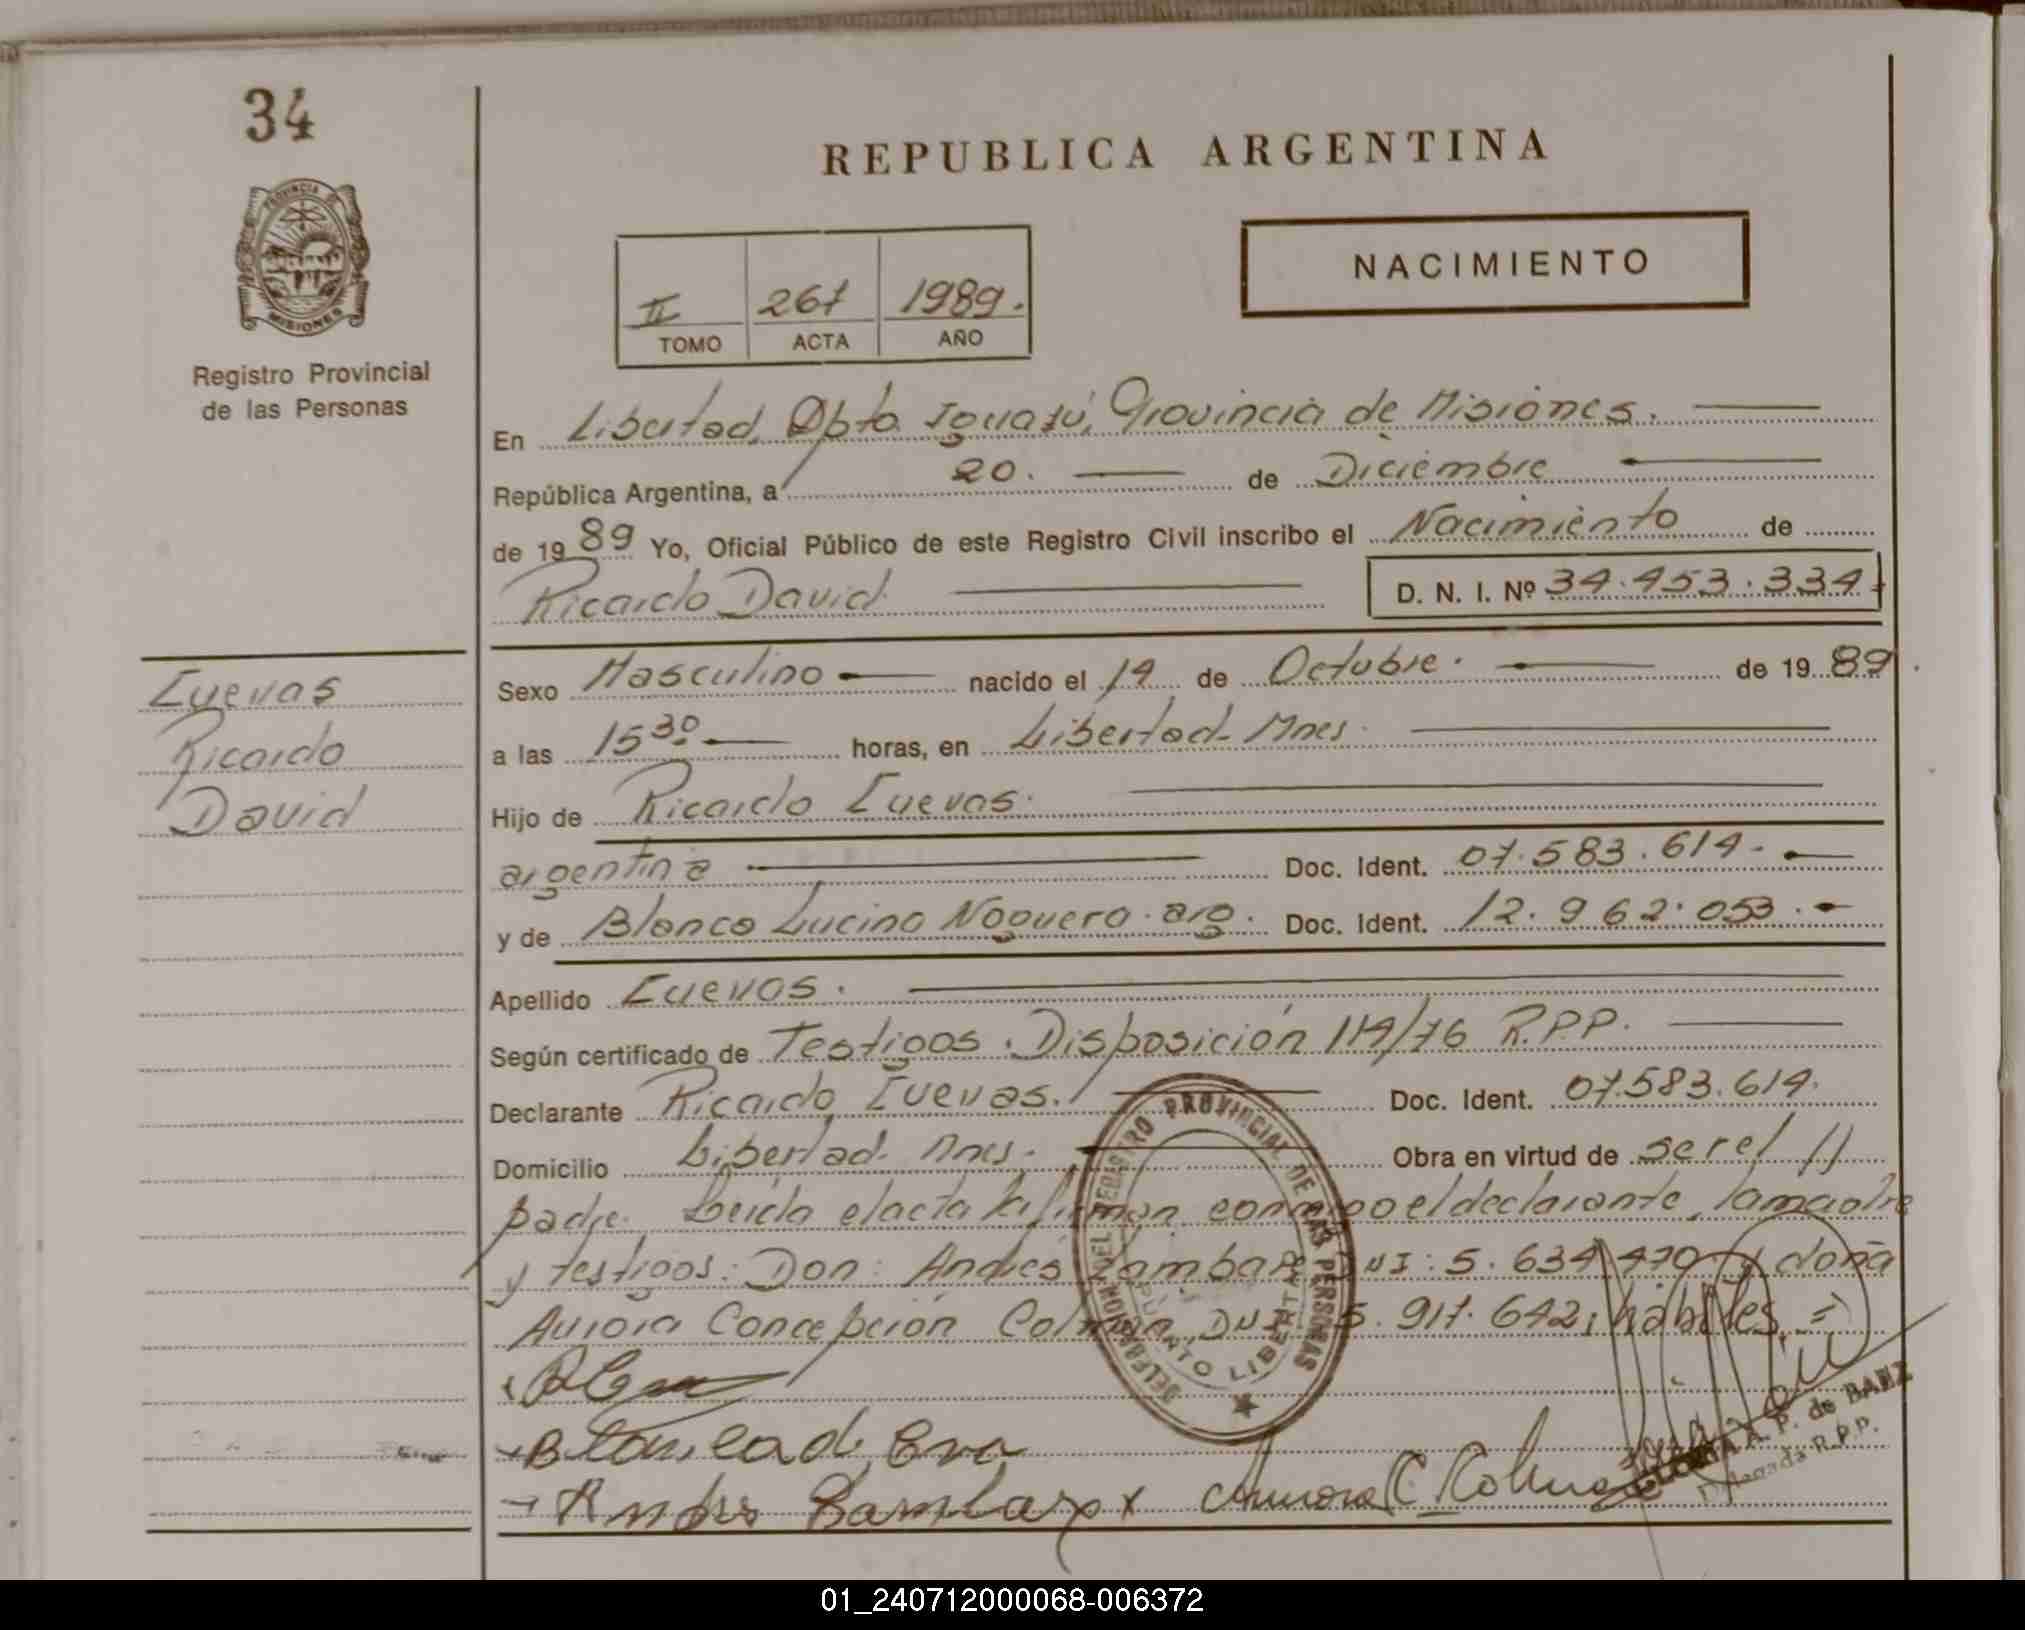 34
REPUBLICA ARGENTINA
PROVINCIA DE
MISIONES
Registro Provincial
de las Personas
NACIMIENTO
II 267 1989.
TOMO ACTA AÑO
En Libertad, Dpto. Iguazú, Provincia de Misiones.
República Argentina, a 20. de Diciembre
de 1989 Yo, Oficial Público de este Registro Civil inscribo el Nacimiento de
Ricardo David D. N. I. Nº 34.453.334
Cuevas
Ricardo
David
Sexo Masculino nacido el 14 de Octubre. de 1989.
a las 15 30 horas, en Libertad- Mnes.
Hijo de Ricardo Cuevas.
argentina Doc. Ident. 07.583.614.
y de Blanca Lucina Noguera. arg. Doc. Ident. 12.962.053.
Apellido Cuevas.
Según certificado de Testigos. Disposición 114/76 R.P.P.
Declarante Ricardo Cuevas. Doc. Ident. 07.583.614.
Domicilio Libertad- Mnes. Obra en virtud de ser el //
padre. Leída el acta la firman conmigo el declarante, la madre
y testigos: Don: Andrés DNI: 5.634.470 y doña
Aurora Concepción Colman, DNI 5.917.642, hábiles. =
REGISTRO PROVINCIAL DE LAS PERSONAS
PUERTO LIBERTAD
Aurora C. Colman
A. P. de BAEZ
Delegada R.P.P.
01_240712000068-006372